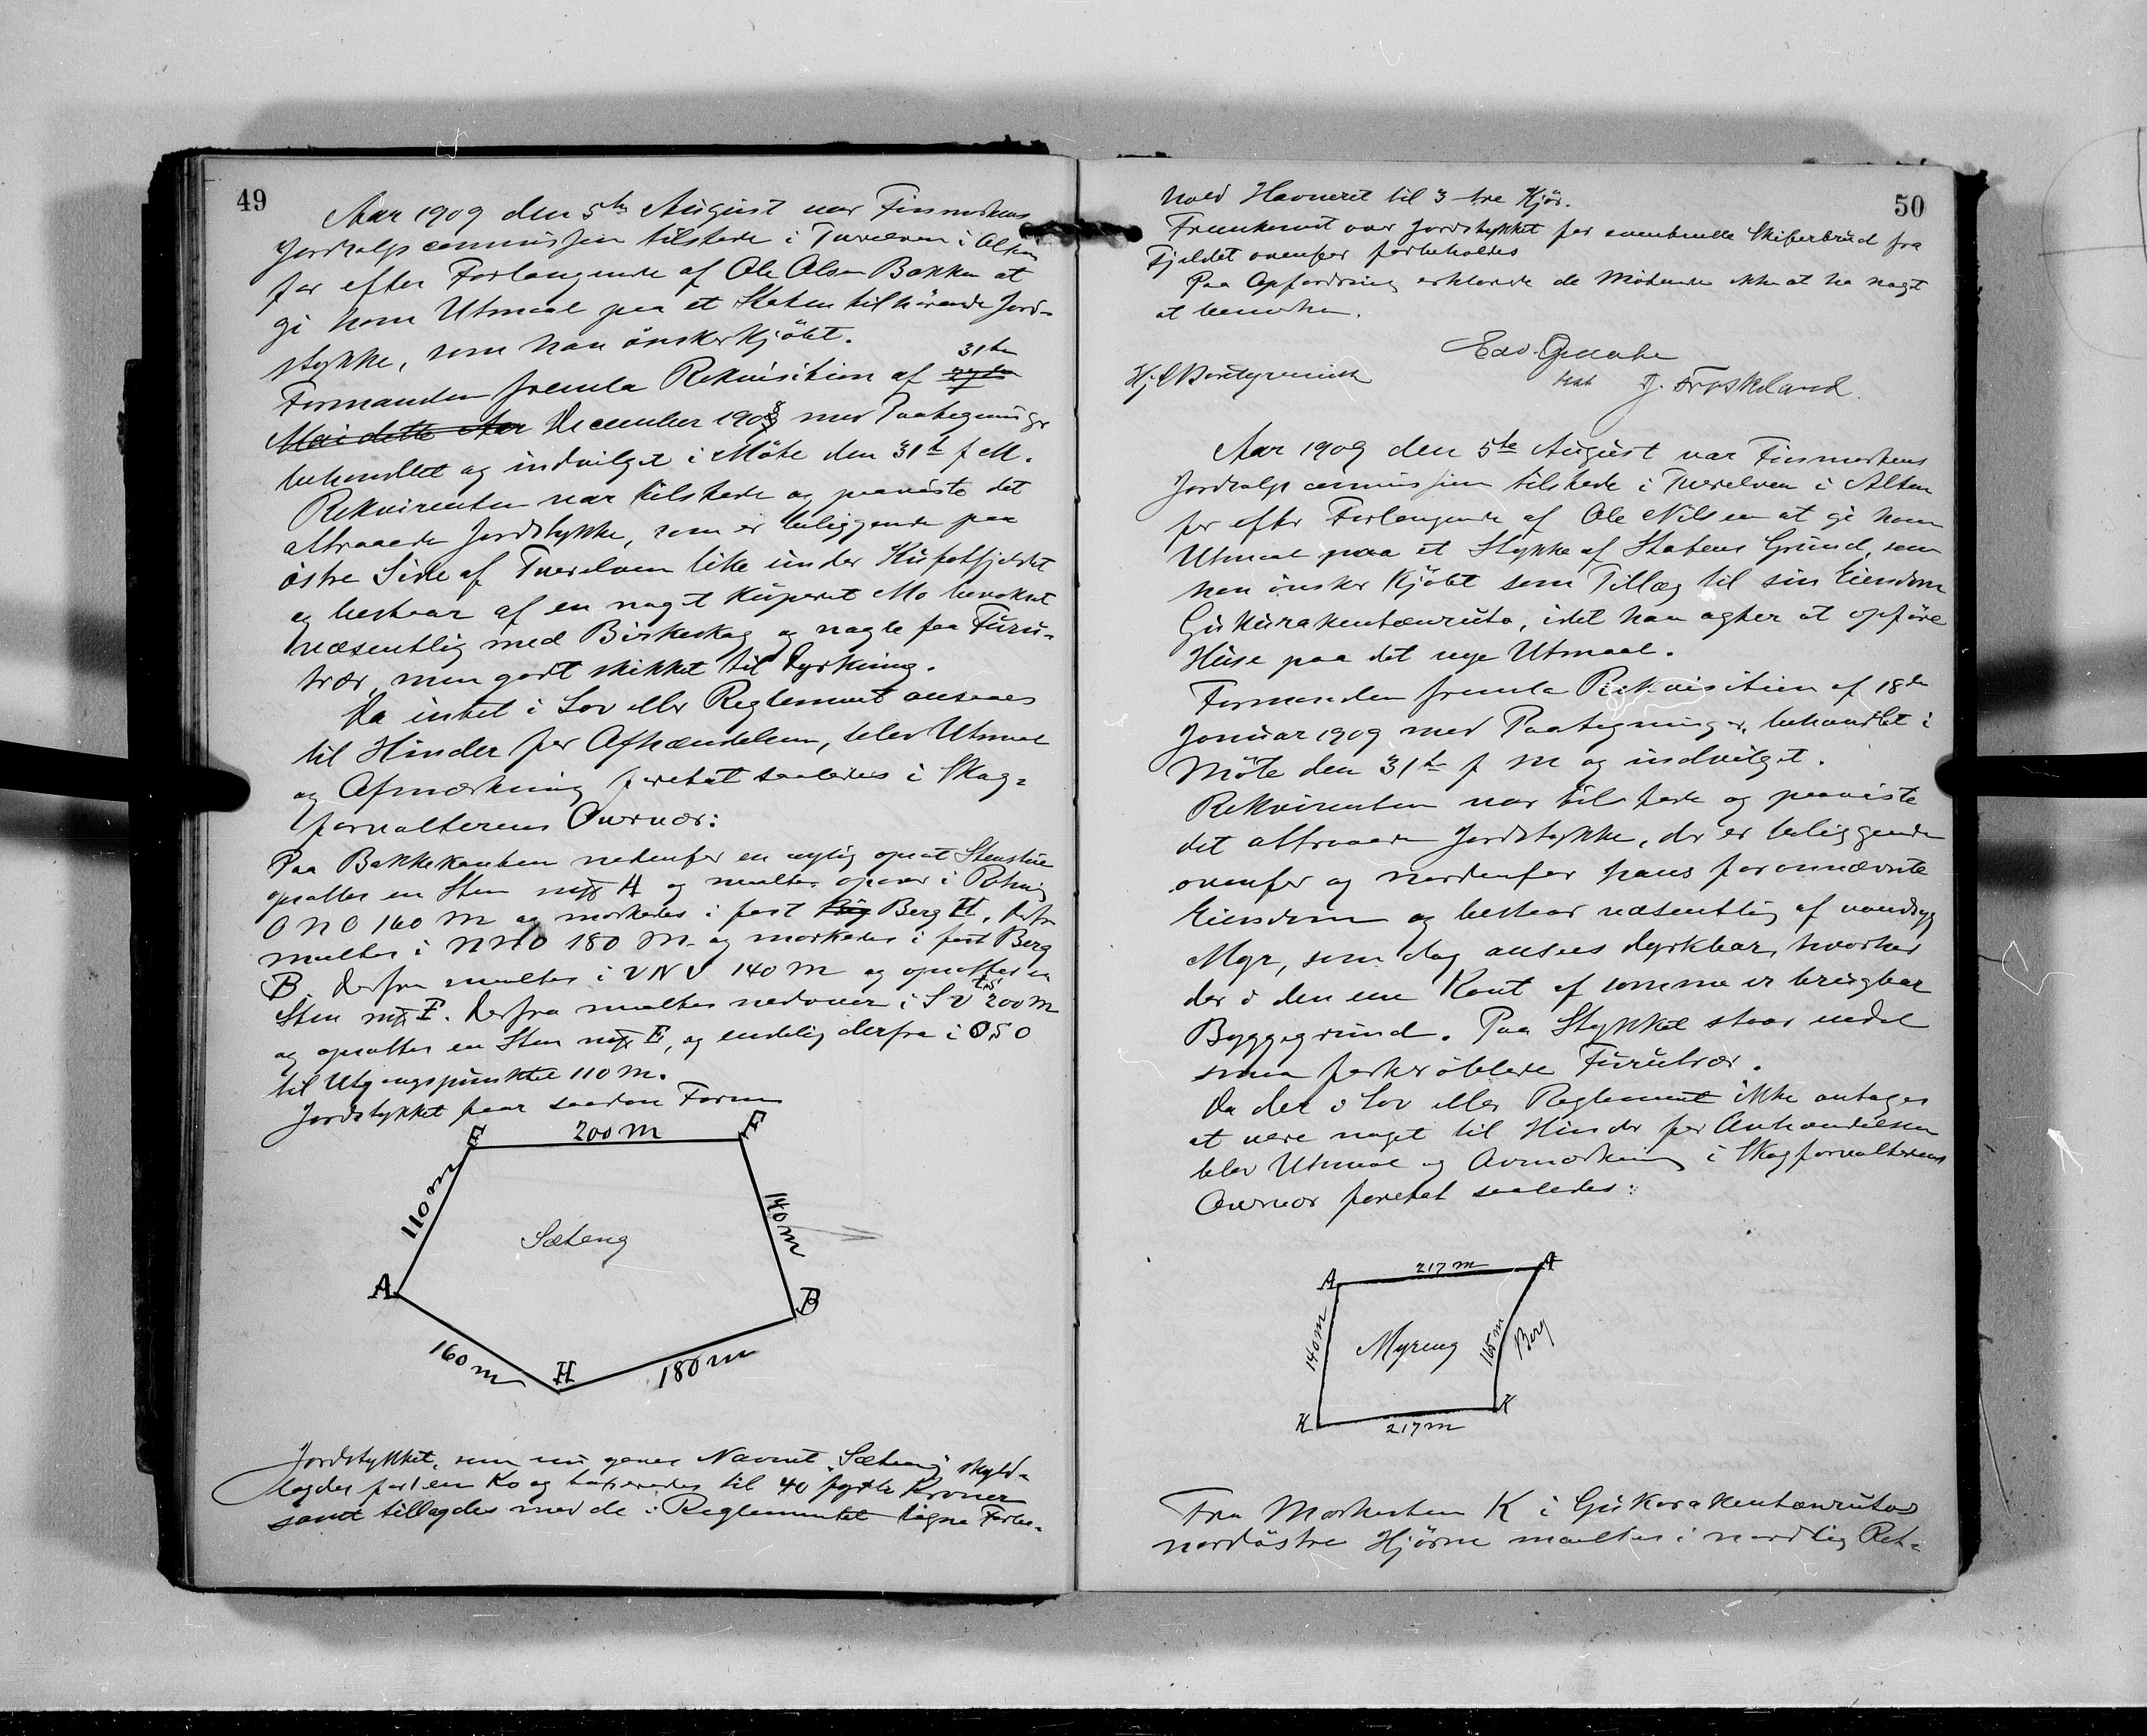 49
Aar 1909 den 5te August var Finmarkens
Jordsalgscommission tilstede i Tverelven i Alten
for efter Forlangende af Ole Olsen Bakken at
gi ham Utmaal paa et Staten tilhørende Jord-
stykke, som han ønsker kjøbt.
31te
Formanden fremla Rekvisition af
Mai dette Aar December 1908 med Paategninger
behandlet og indvilget i Møte den 31te f M.
Rekvirenten var tilstede og paaviste det
attraaede Jordstykke, som er beliggende paa
østre Side af Tverelven like under Kufotfjeldet
og bestaar af en noget kuperet Mo bevokset
væsentlig med Birkeskog og nogle faa Furu-
trær, men godt skikket til Dyrkning.
Da intet i Lov eller Reglement ansees
til Hinder for Afhændelsen, blev Utmaal
og Afmerkning foretat saaledes i Skog-
forvalterens Overvær:
Paa Bakkekanten nedenfor en nylig opsat Stenstue
opsattes en Sten mrk A og maaltes opover i Retning
O N O 160 m og merkedes i fast Berg H, derfra
maaltes i N N O 180 m og merkedes i fast Berg
B. Derfra maaltes i V N V 140 m og opsattes en
Sten mrk F. Derfra maaltes nedover i S V 200 m
og opsattes en Sten mrk E, og endelig derfra i O S O
til Utgangspunktet 110 m.
Jordstykket faar saadan Form
E 200 m F
110 m
140 m
Sæteng
A
B
160 m H 180 m
Jordstykket, som nu gives Navnet "Sæteng" skyld-
lagdes for 1 en Ko og taxeredes til 40 førti Kroner
samt tillagdes med de i Reglementet tagne Forbe-
50
hold Havneret til 3 tre Kjør.
Fremkomst over Jordstykket for eventuelle Skiferbrud fra
Fjeldet ovenfor forbeholdes
Paa Opfordring erklærede de Mødende ikke at ha noget
at bemerke.
J. Fosseland
Aar 1909 den 5te August var Finmarkens
Jordsalgscommission tilstede i Tverelven i Alten
for efter Forlangende af Ole Nilsen at gi ham
Utmaal paa et Stykke af Statens Grund, som
han ønsker kjøbt som Tillæg til sin Eiendom
Gukurakentænruto, idet han agter at opføre
Huse paa det nye Utmaal.
Formanden fremla Rekvisition af 18de
Januar 1909 med Paategninger, behandlet i
Møte den 31te f M og indvilget.
Rekvirenten var tilstede og paaviste
det attraaede Jordstykke, der er beliggende
ovenfor og nordenfor hans forannævnte
Eiendom og bestaar væsentlig af vandsyg
Myr, som dog ansees dyrkbar, hvorhos
der i den ene Kant af samme er brugbar
Byggegrund. Paa Stykket staar endel
smaa forkrøblede Furutrær.
Da der i Lov eller Reglement ikke antages
at være noget til Hinder for Avhændelsen
blev Utmaal og Avmerkning i Skogforvalterens
Overvær foretat saaledes:
A 217 m A
140 m
Myreng
165 m
Berg
K 217 m K
Fra Merkesten K i Gukorakentænrutos
nordøstre Hjørne maaltes i nordlig Ret-